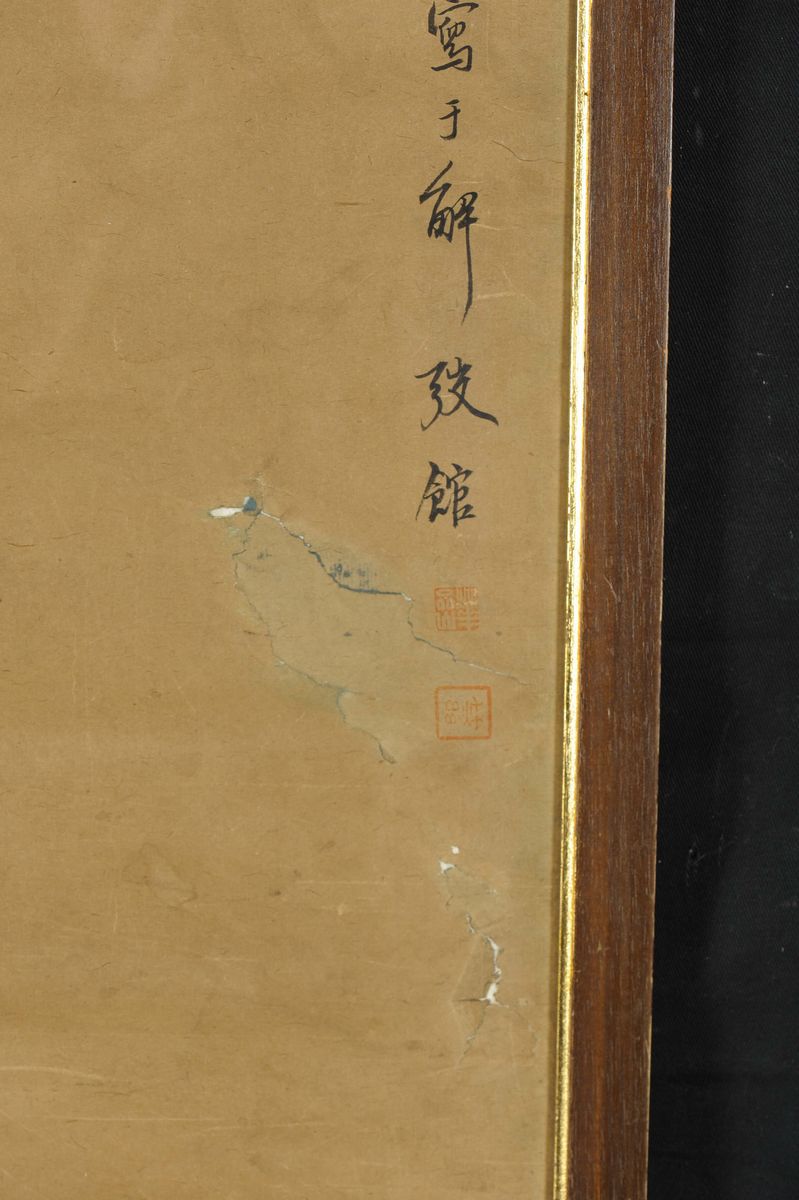 寫于解弢館